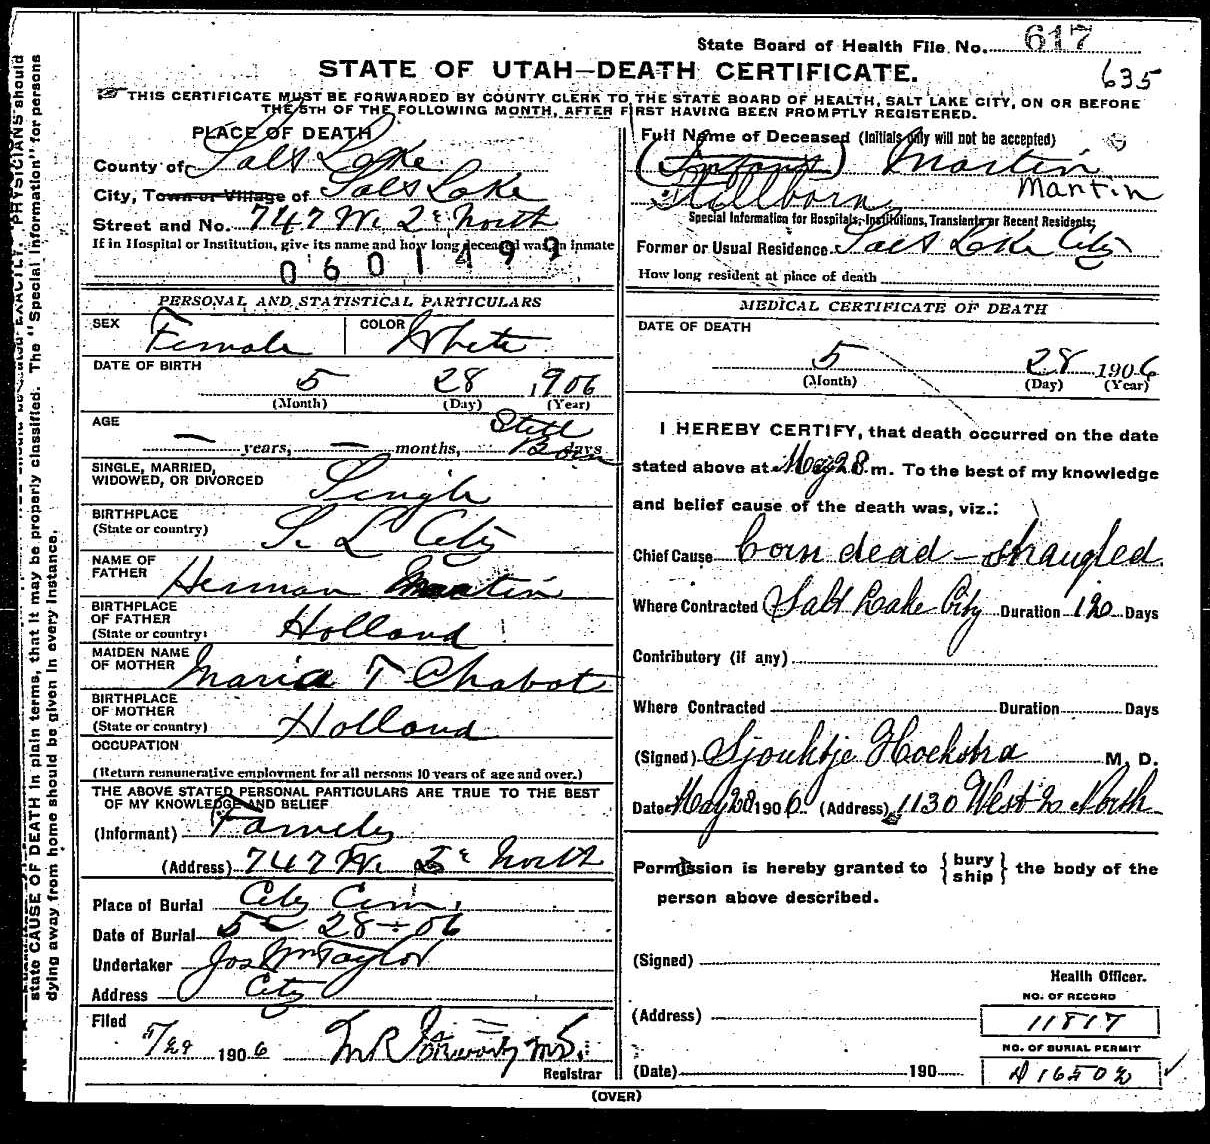 State Board of Health File No. 617
635
STATE OF UTAH—DEATH CERTIFICATE.
THIS CERTIFICATE MUST BE FORWARDED BY COUNTY CLERK TO THE STATE BOARD OF HEALTH, SALT LAKE CITY, ON OR BEFORE
THE 5TH OF THE FOLLOWING MONTH, AFTER FIRST HAVING BEEN PROMPTLY REGISTERED.
PLACE OF DEATH
County of Salt Lake
City, Town or Village of Salt Lake
Street and No. 747 W. 2d North
If in Hospital or Institution, give its name and how long deceased was an inmate
0601499
PERSONAL AND STATISTICAL PARTICULARS
SEX Female COLOR White
DATE OF BIRTH
5 28 1906
(Month) (Day) (Year)
AGE
— years, — months, Still Born days
SINGLE, MARRIED,
WIDOWED, OR DIVORCED Single
BIRTHPLACE
(State or country) S. L. City
NAME OF
FATHER Herman Martin
BIRTHPLACE
OF FATHER
(State or country) Holland
MAIDEN NAME
OF MOTHER Maria T Chabot
BIRTHPLACE
OF MOTHER
(State or country) Holland
OCCUPATION
(Return remunerative employment for all persons 10 years of age and over.)
THE ABOVE STATED PERSONAL PARTICULARS ARE TRUE TO THE BEST
OF MY KNOWLEDGE AND BELIEF
(Informant) Family
(Address) 747 W. 2d North
Place of Burial City Cem.
Date of Burial 5 - 28 - 06
Undertaker Jos Wm Taylor
Address City
Filed
5/29 1906
Registrar
Full Name of Deceased (Initials only will not be accepted)
(Infant) Martin
Stillborn Martin
Special Information for Hospitals, Institutions, Transients or Recent Residents:
Former or Usual Residence Salt Lake City
How long resident at place of death
MEDICAL CERTIFICATE OF DEATH
DATE OF DEATH
5 28 1906
(Month) (Day) (Year)
I HEREBY CERTIFY, that death occurred on the date
stated above at May 28 m. To the best of my knowledge
and belief cause of the death was, viz.:
Chief Cause born dead — strangled
Where Contracted Salt Lake City Duration Days
Contributory (if any)
Where Contracted Duration Days
(Signed) Sjoukje Hoekstra M. D.
Date May 28 1906 (Address) 1130 West 2o North
Permission is hereby granted to {bury ship} the body of the
person above described.
(Signed)
Health Officer.
(Address)
NO. OF RECORD
11817
NO. OF BURIAL PERMIT
(Date) 190 A 16502
(OVER)
state CAUSE OF DEATH in plain terms, that it may be properly classified. The "Special Information" for persons
dying away from home should be given in every instance.